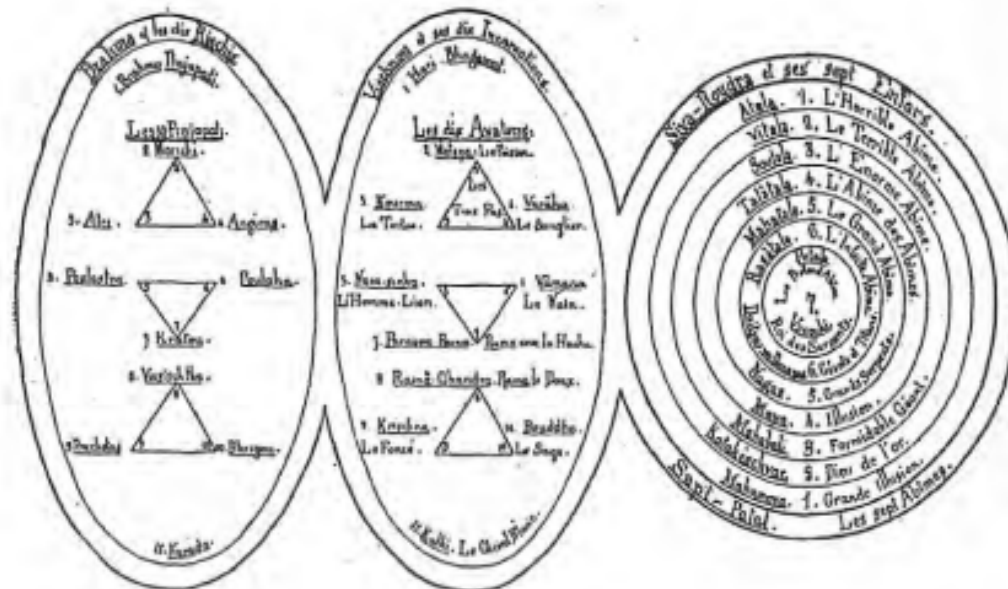 Brahma et les dix Rischis.
1. Brahma Prajapati.
Les 10 Prajapati.
2. Marichi.
3. Atri.
4. Angiras
5. Pulastra
6. Poulaha.
7. Kratou
8. Vasischtha.
9.
10. Bhrigou.
11. Narada.
Vischnou et ses dix Incarnations.
1. Hari-Bhagavat.
Les dix Avatars.
2. Matsya-Le Poisson.
Les
Trois Pas
3. Kourma
La Tortue.
4. Varaha
Le Sanglier.
5. Nara-sinha
L'Homme-Lion.
6. Vâmana
Le Nain.
7. Parasou Rama
Rama avec la Hache.
8. Ramâ Chandra Rama le Doux.
9. Krischna
Le Foncé.
10. Bouddha
Le Sage.
11. Kalki. Le Cheval
Siva-Roudra et ses sept Enfers.
Atala. 1. L'Horrible Abîme.
Vitala. 2. Le Terrible Abîme.
Soutala. 3. L'Enorme Abîme.
Talâtala. 4. L'Abîme des Abîmes.
Mahatala. 5. Le Grand Abîme.
Rasâtala. 6. L'Infecte Abîme.
Patala
7.
Roi des Serpents.
6. Géants et Titans.
Nagas. 5. Grands Serpents.
Maya. 4. Illusion.
Mahabali. 3. Formidable Géant.
2. Dieu de l'or.
Mahamaya. 1. Grande Illusion.
Sapt-Patal. Les sept Abîmes.